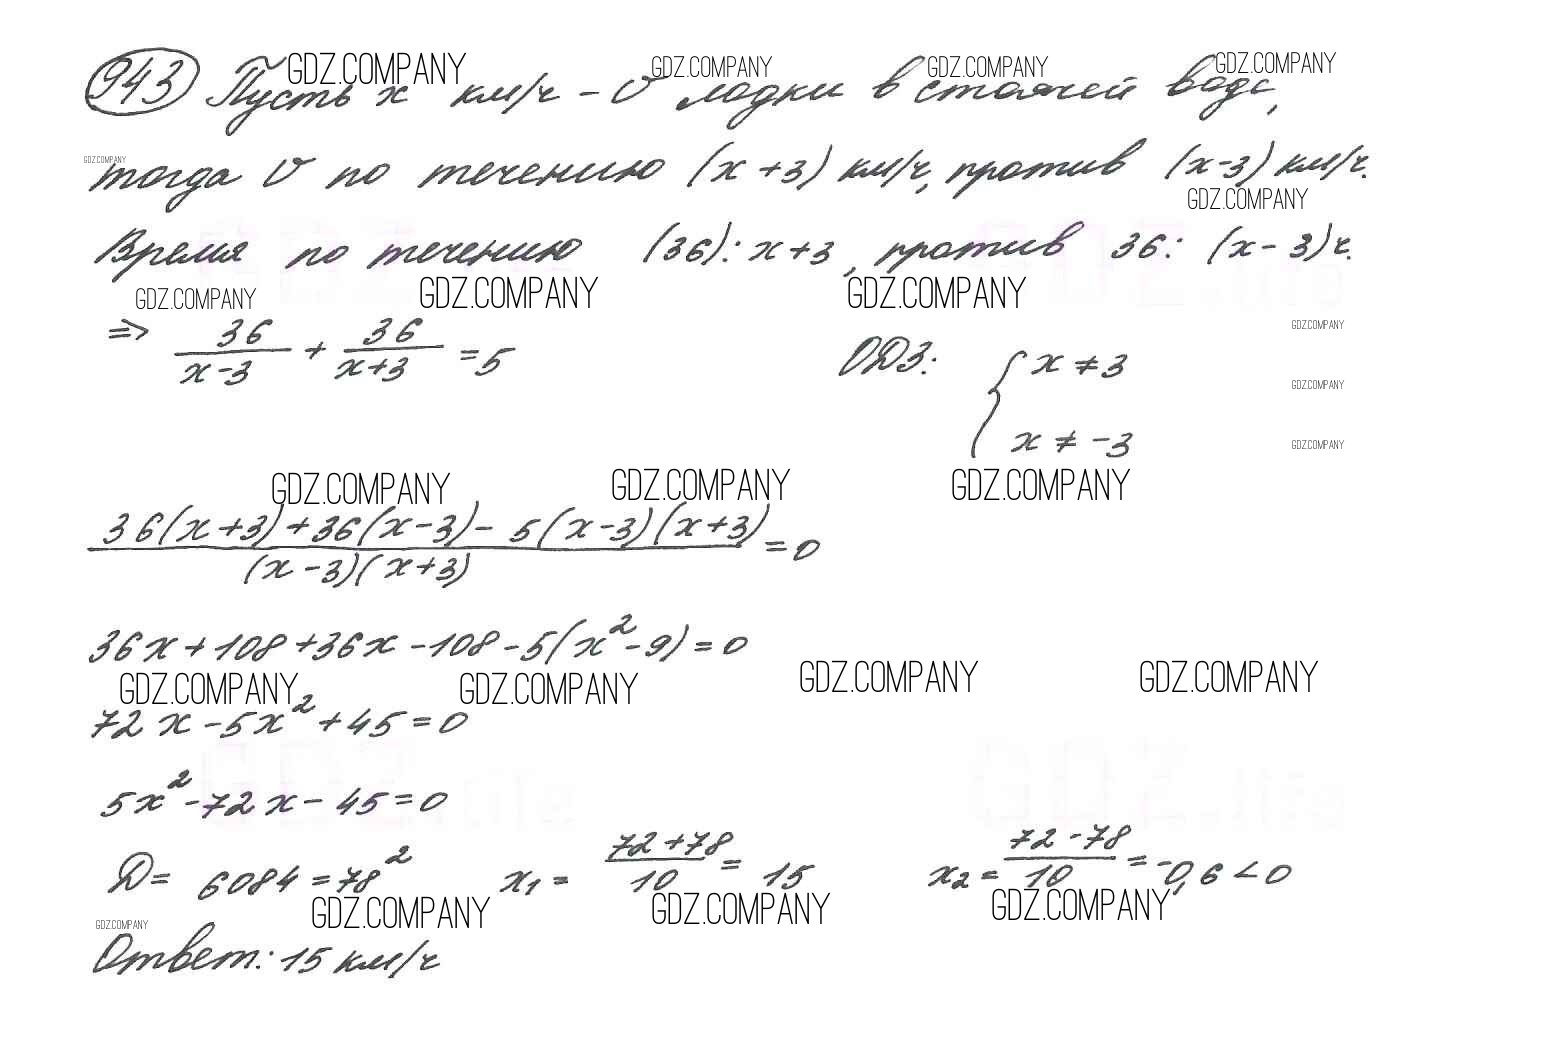 943 Пусть x км/ч - V лодки в стоячей воде,
тогда V по течению (x+3) км/ч, против (x-3) км/ч.
Время по течению (36): x+3, против 36: (x-3)ч.
=> 36/(x-3) + 36/(x+3) = 5 ОДЗ: { x ≠ 3
x ≠ -3
36(x+3)+36(x-3)-5(x-3)(x+3) / (x-3)(x+3) = 0
36x+108+36x-108-5(x²-9)=0
72x-5x²+45=0
5x²-72x-45=0
D= 6084=78² x₁= (72+78)/10 = 15 x₂= (72-78)/10 = -0,6<0
Ответ: 15 км/ч
GDZ.COMPANY GDZ.COMPANY GDZ.COMPANY GDZ.COMPANY
GDZ.COMPANY GDZ.COMPANY
GDZ.COMPANY GDZ.COMPANY GDZ.COMPANY
GDZ.COMPANY
GDZ.COMPANY
GDZ.COMPANY
GDZ.COMPANY GDZ.COMPANY GDZ.COMPANY
GDZ.COMPANY GDZ.COMPANY GDZ.COMPANY GDZ.COMPANY
GDZ.COMPANY GDZ.COMPANY GDZ.COMPANY
GDZ.COMPANY